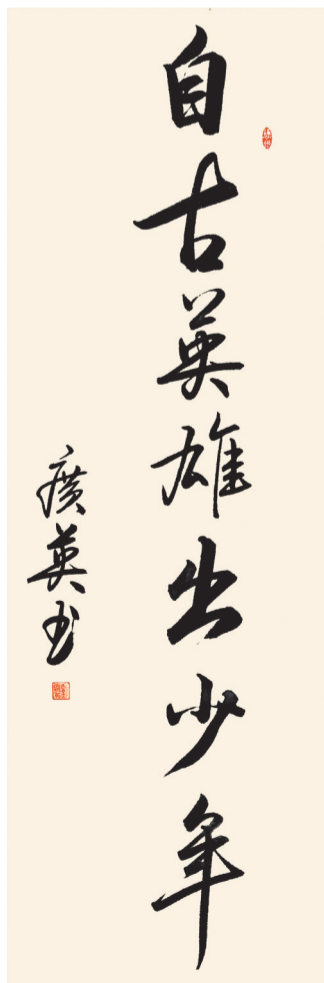 自古英雄出少年
廣英书